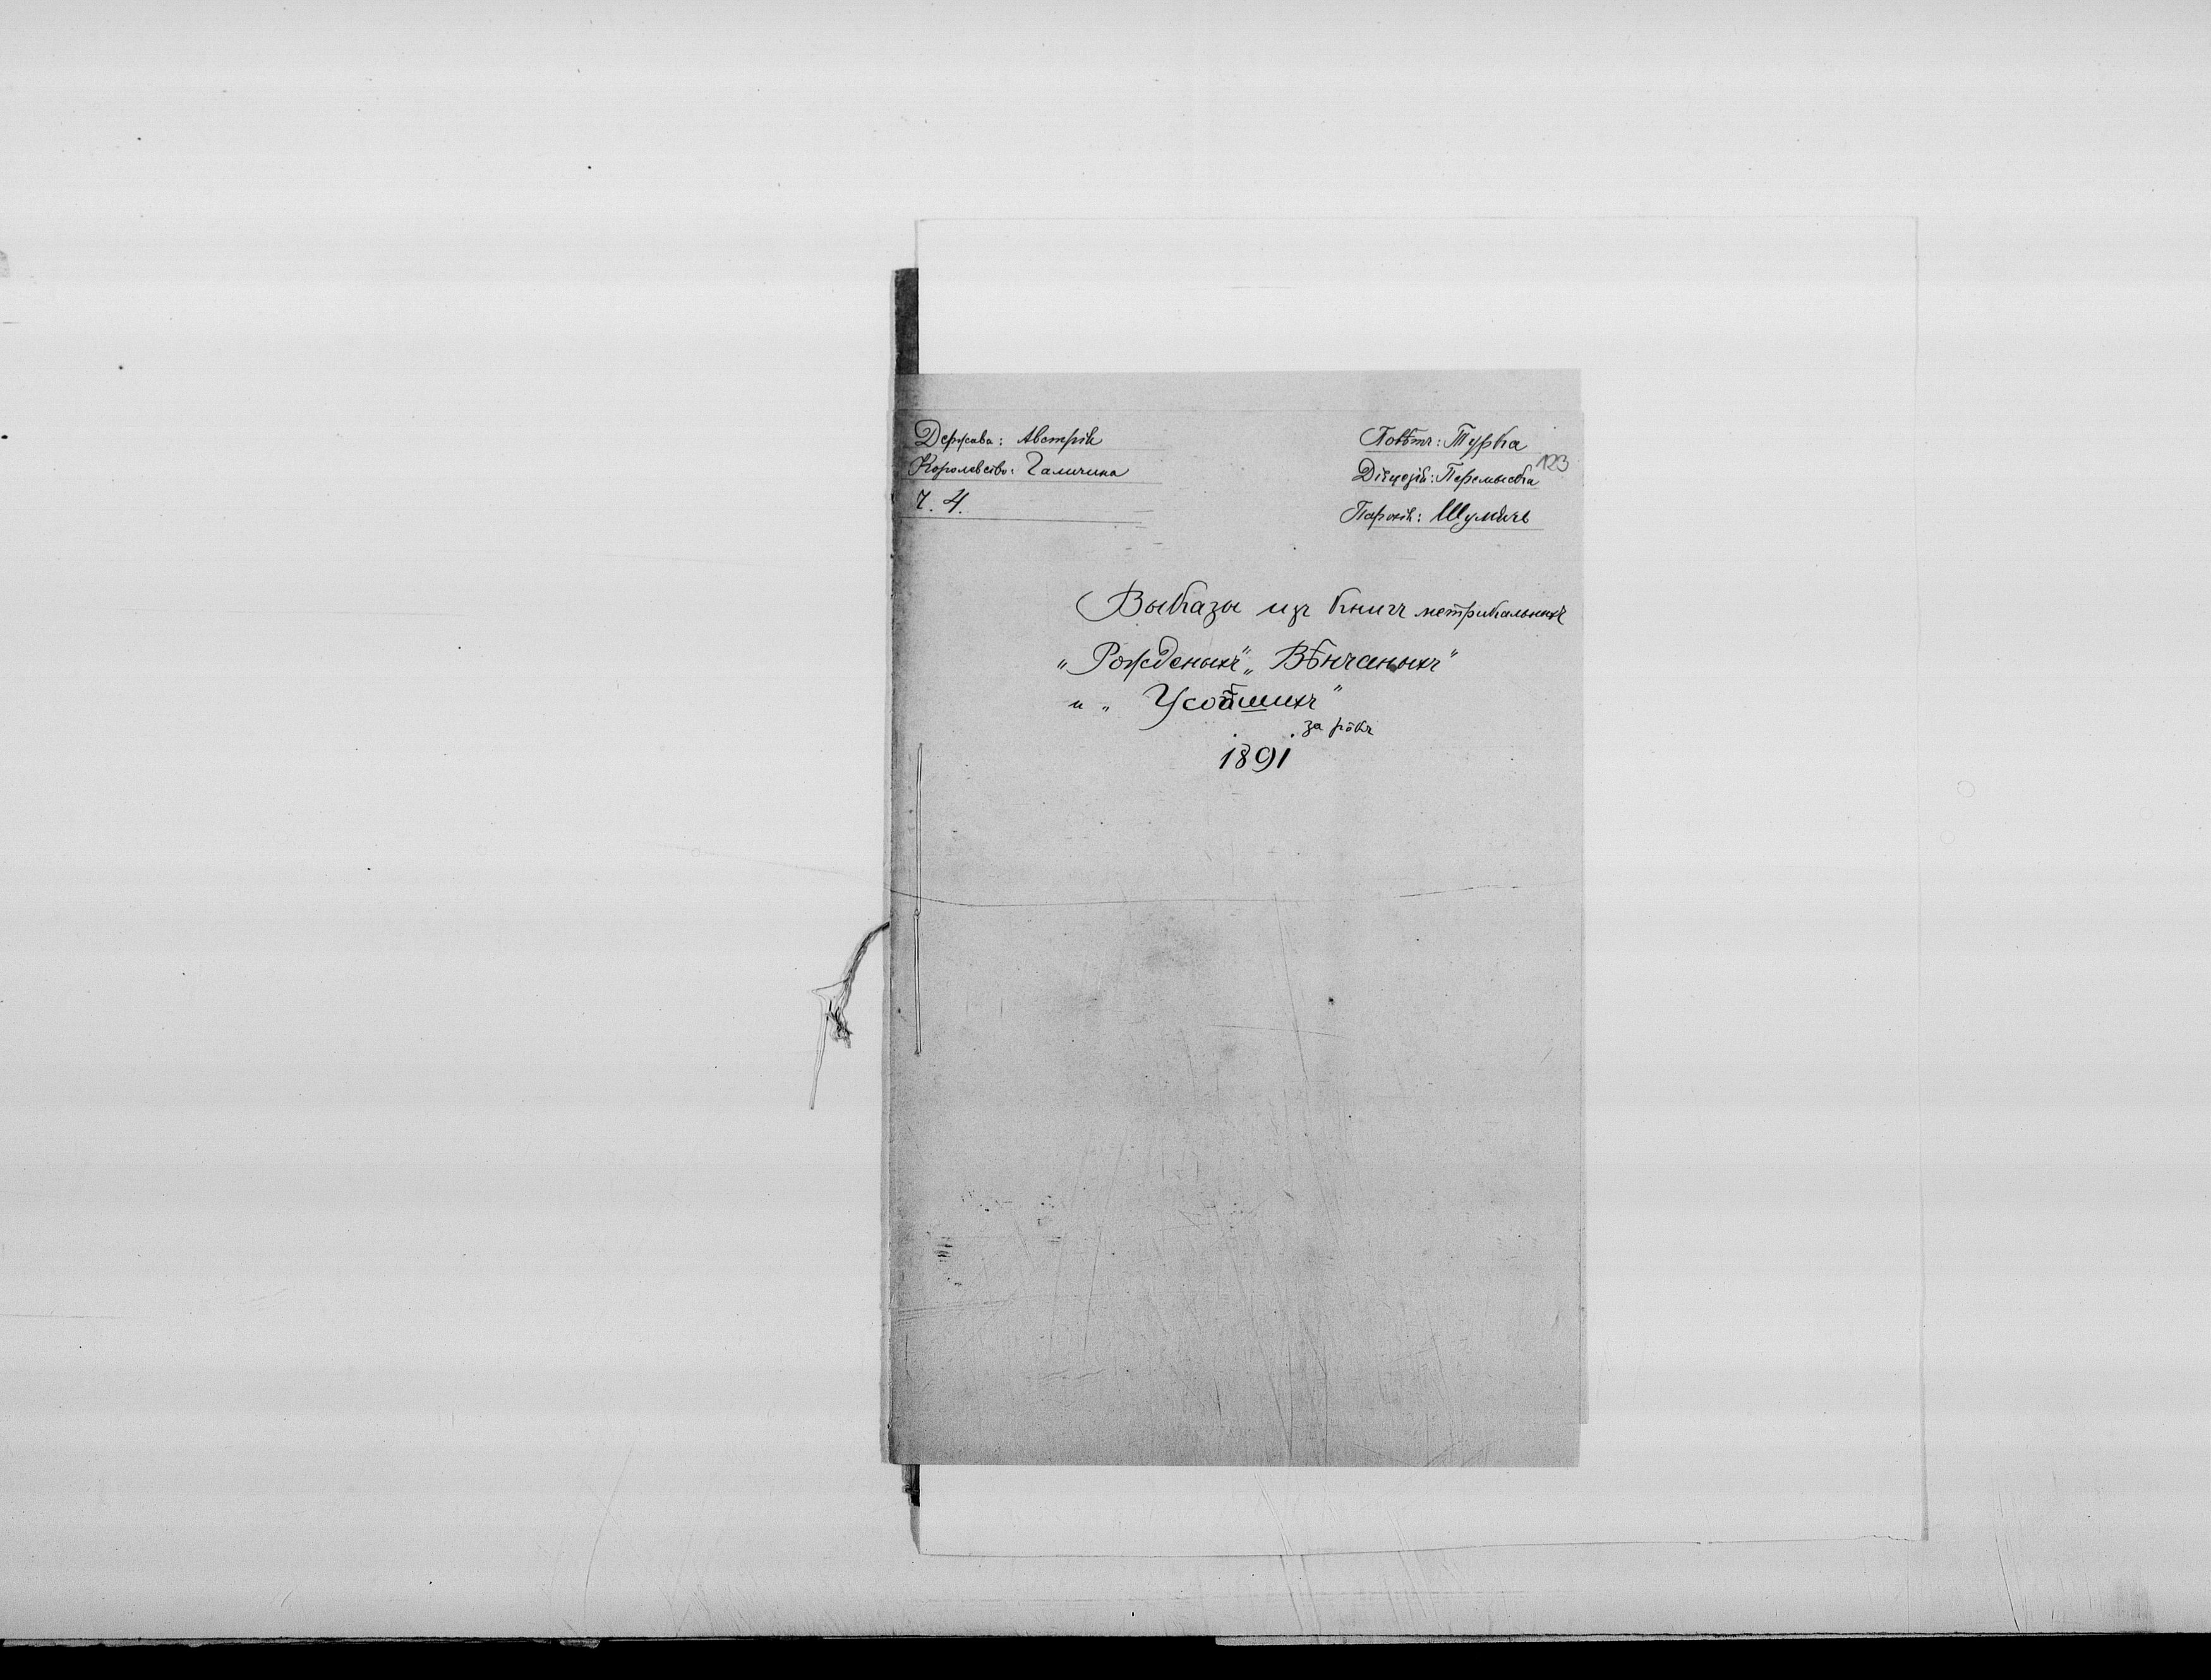 Держава: Австрія
Королевство: Галичина
Ч. 4.
Повѣтъ: Турка
123
Діецезія: Перемыска
Парохія: Шумячь
Выказы изъ книгъ метрикальныхъ
„Рожденыхъ" „Вѣнчаныхъ"
и „Усопшихъ"
за рôкъ
1891